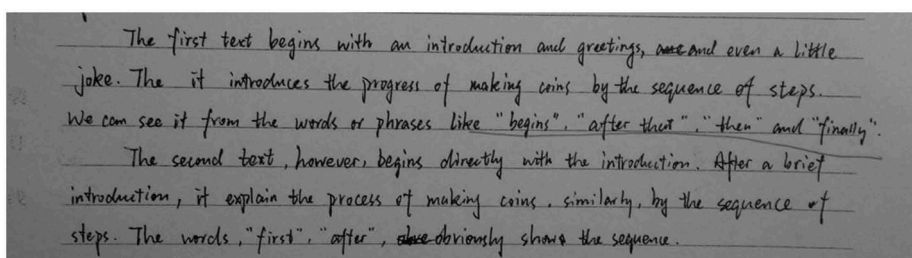 The first text begins with an introduction and greetings, and even a little
joke. The it introduces the progress of making coins by the sequence of steps.
We can see it from the words or phrases like "begins", "after that", "then" and "finally".
The second text, however, begins directly with the introduction. After a brief
introduction, it explain the process of making coins, similarly, by the sequence of
steps. The words, "first", "after", obviously shows the sequence.